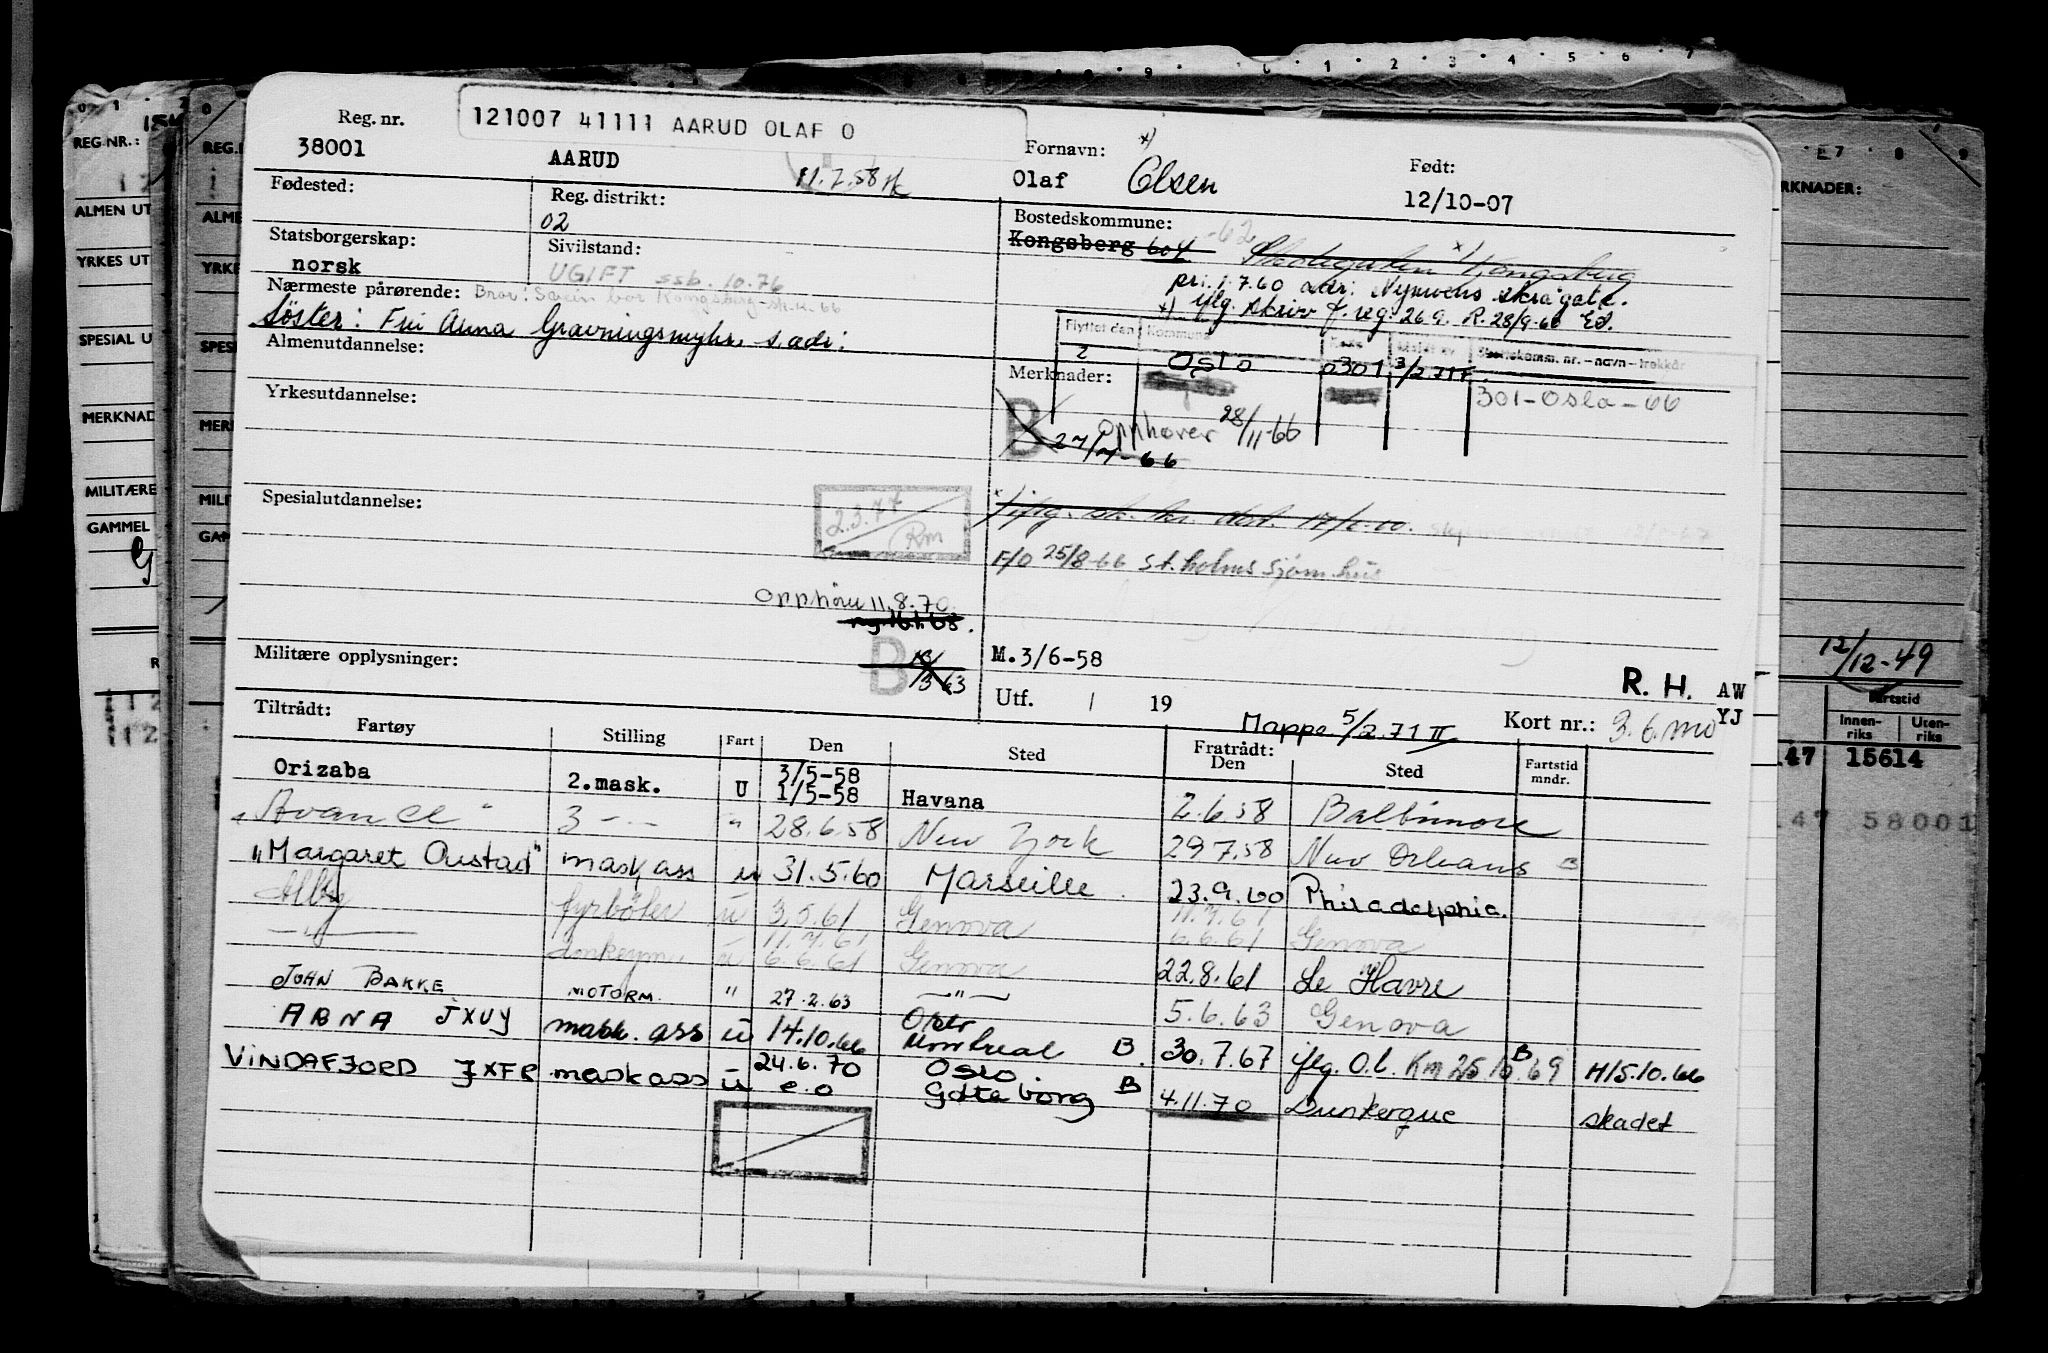 121007 41111 AARUD OLAF O
Reg. nr.
38001
AARUD
11.7.58
Fornavn: *)
Olaf Olsen
Født:
12/10-07
Fødested:
Reg. distrikt:
02
Bostedskommune:
Kongsberg 604 -62
Kongsberg
Statsborgerskap:
norsk
Sivilstand:
UGIFT ssb. 10.76
pr. 1.7.60 adr: Nymoens skrågate.
*) iflg. skriv f. reg. 269. R. 28/9-60
Nærmeste pårørende: Bror: Svein bor Kongsberg
Søster: Fru Anna Gravningsmyhr s. adr.
Flyttet den Kommune
2 Oslo 0301 3/2.71 F.
Bostedskomm. nr. – navn – trekkår
301-Oslo-66
Almenutdannelse:
Merknader:
B 27/7-66
Opphører 28/11-66
Yrkesutdannelse:
Spesialutdannelse:
2.3.77
Rm
F/O 25/8-66 St. holms sjøm. hus
Opphører 11.8.70
Militære opplysninger:
B
M. 3/6-58
Utf. / 19
R. H. AW
YJ
Mappe 5/2.71 II
Kort nr.: 3.6. mo
Tiltrådt:
Fartøy Stilling Fart Den Sted Fratrådt: Den Sted Fartstid mndr.
Orizaba 2. mask. U 3/5-58 1/5-58 Havana 2.6.58 Baltimore
"Avance" 3 -"- " 28.6.58 New York 29.7.58 New Orleans B
"Margaret Onstad" mask ass u 31.5.60 Marseille 23.9.60 Philadelphia.
Alby fyrbøter u 3.5.61 Genova 6.6.61 Genova
-"- donkeym. u 6.6.61 Genova 22.8.61 Le Havre
JOHN BAKKE MOTORM. " 27.2.63 -"- 5.6.63 Genova
ABNA JXUY mask. ass u 14.10.66 Montreal B 30.7.67 iflg. O.l. B H15.10.66
VINDAFJORD JXFR mask ass u 24.6.70 Oslo
e.o Gøteborg B 4.11.70 Dunkerque skadet
REG NR.:
ALMEN UT
YRKES UT
SPESIAL U
MERKNAD
MILITÆRE
GAMMEL
RKNADER:
12/12-49
Fartstid
Innen-riks Uten-riks
47 15614
47 58001